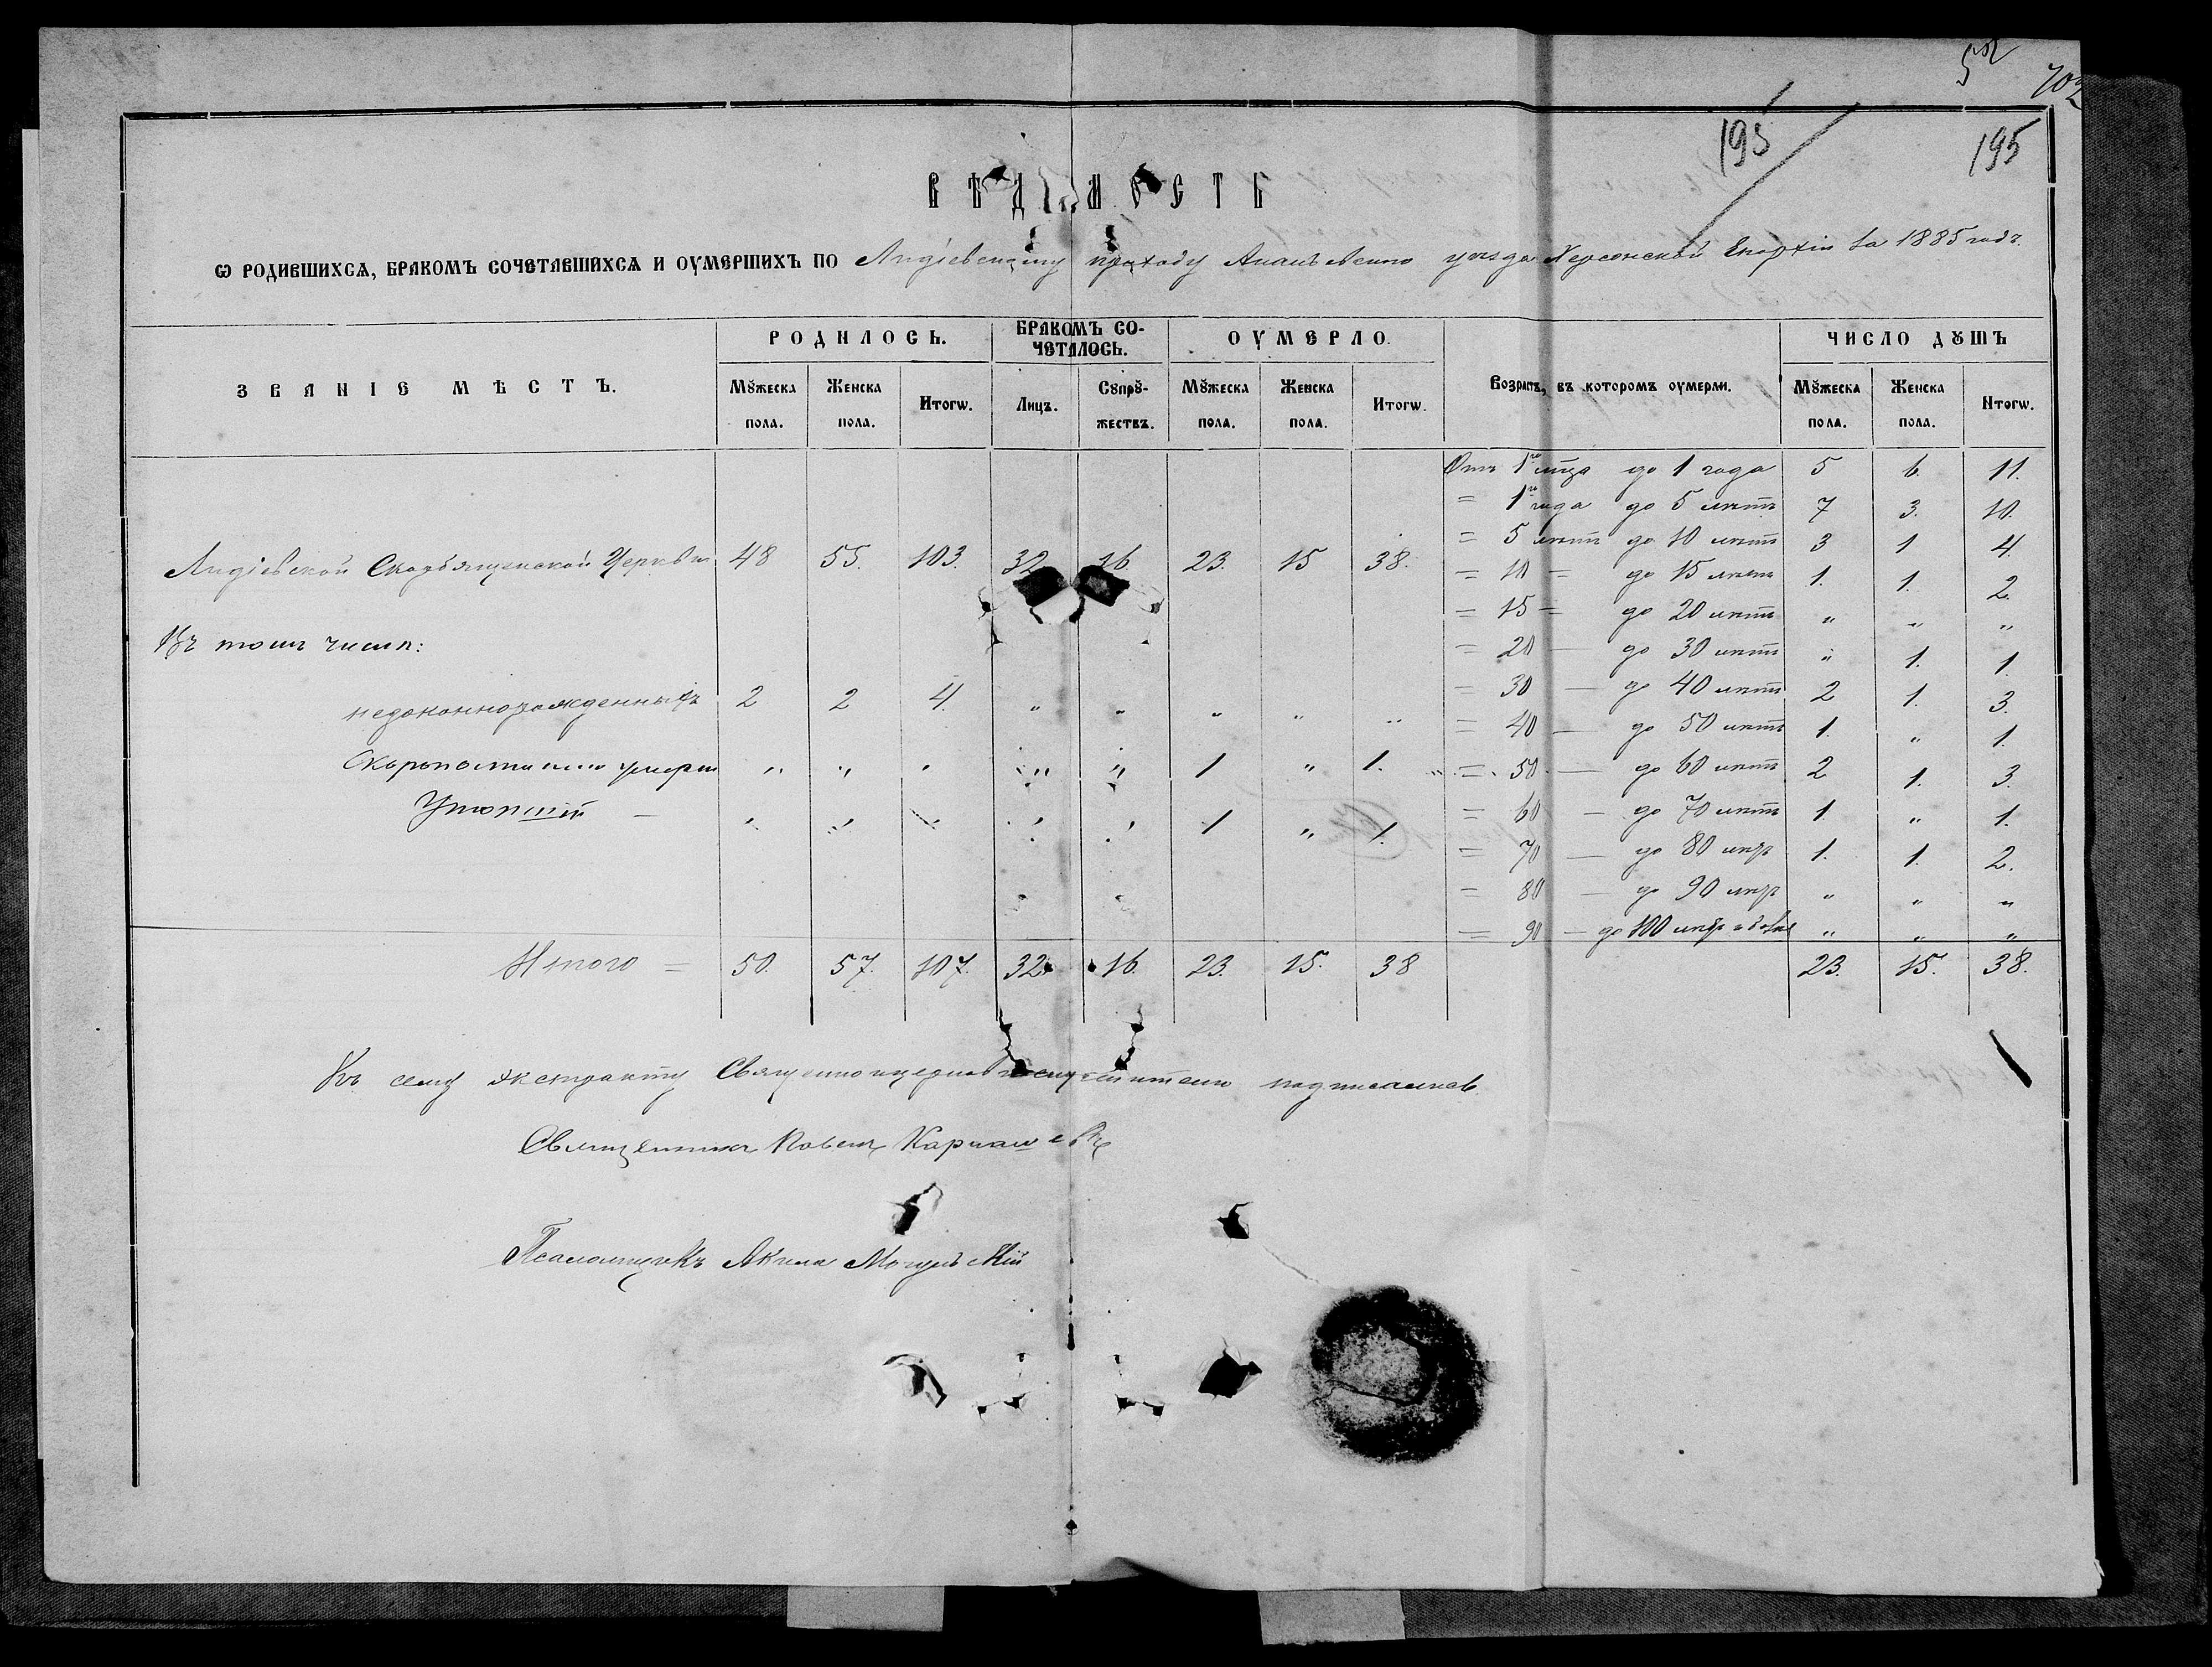 52
702
195
195
ВѢДОМОСТЬ
Ѡ РОДИВШИХСѦ, БРАКОМЪ СОЧЕТАВШИХСѦ И ОУМЕРШИХЪ ПО Лидіевскому приходу Ананьевскаго уѣзда Херсонской Епархіи за 1885 годъ.
ЗВАНІЕ МѢСТЪ. РОДИЛОСЬ. БРАКОМЪ СО-ЧЕТАЛОСЬ. ОУМЕРЛО. Возрастъ, въ которомъ оумерли. ЧИСЛО ДꙊШЪ
Мꙋжеска пола. Женска пола. Итогѡ. Лицъ. Сꙋпрꙋ-жествъ. Мꙋжеска пола. Женска пола. Итогѡ. Мꙋжеска пола. Женска пола. Итогѡ.
Отъ 1го мца до 1 года 5 6. 11.
= 1го года до 5 лѣтъ 7 3. 10.
= 5 лѣтъ до 10 лѣтъ 3 1 4.
Лидіевской Скорбященской Церкви 48 55. 103. 32 16 23. 15 38.
= 10 = до 15 лѣтъ 1. 1. 2.
= 15 = до 20 лѣтъ " " "
Въ томъ числѣ:
= 20 — до 30 лѣтъ " 1. 1.
незаконнорожденныхъ 2 2 4. " " " " "
= 30 — до 40 лѣтъ 2 1. 3.
= 40 — до 50 лѣтъ 1. " 1.
Скоропостижно умерш " " " " " 1 " 1.
= 50 — до 60 лѣтъ 2 1. 3.
Утопшій — " " " " " 1 " 1.
= 60 — до 70 лѣтъ 1 " 1.
= 70 — до 80 лѣтъ 1. 1. 2.
= 80 — до 90 лѣтъ " " "
= 90 — до 100 лѣтъ " " "
Итого = 50. 57. 107. 32 16. 23. 15. 38 23. 15. 38.
Къ сему экстракту Священноцерковнослужители подписались
Священникъ Павелъ
Псаломщикъ Акила